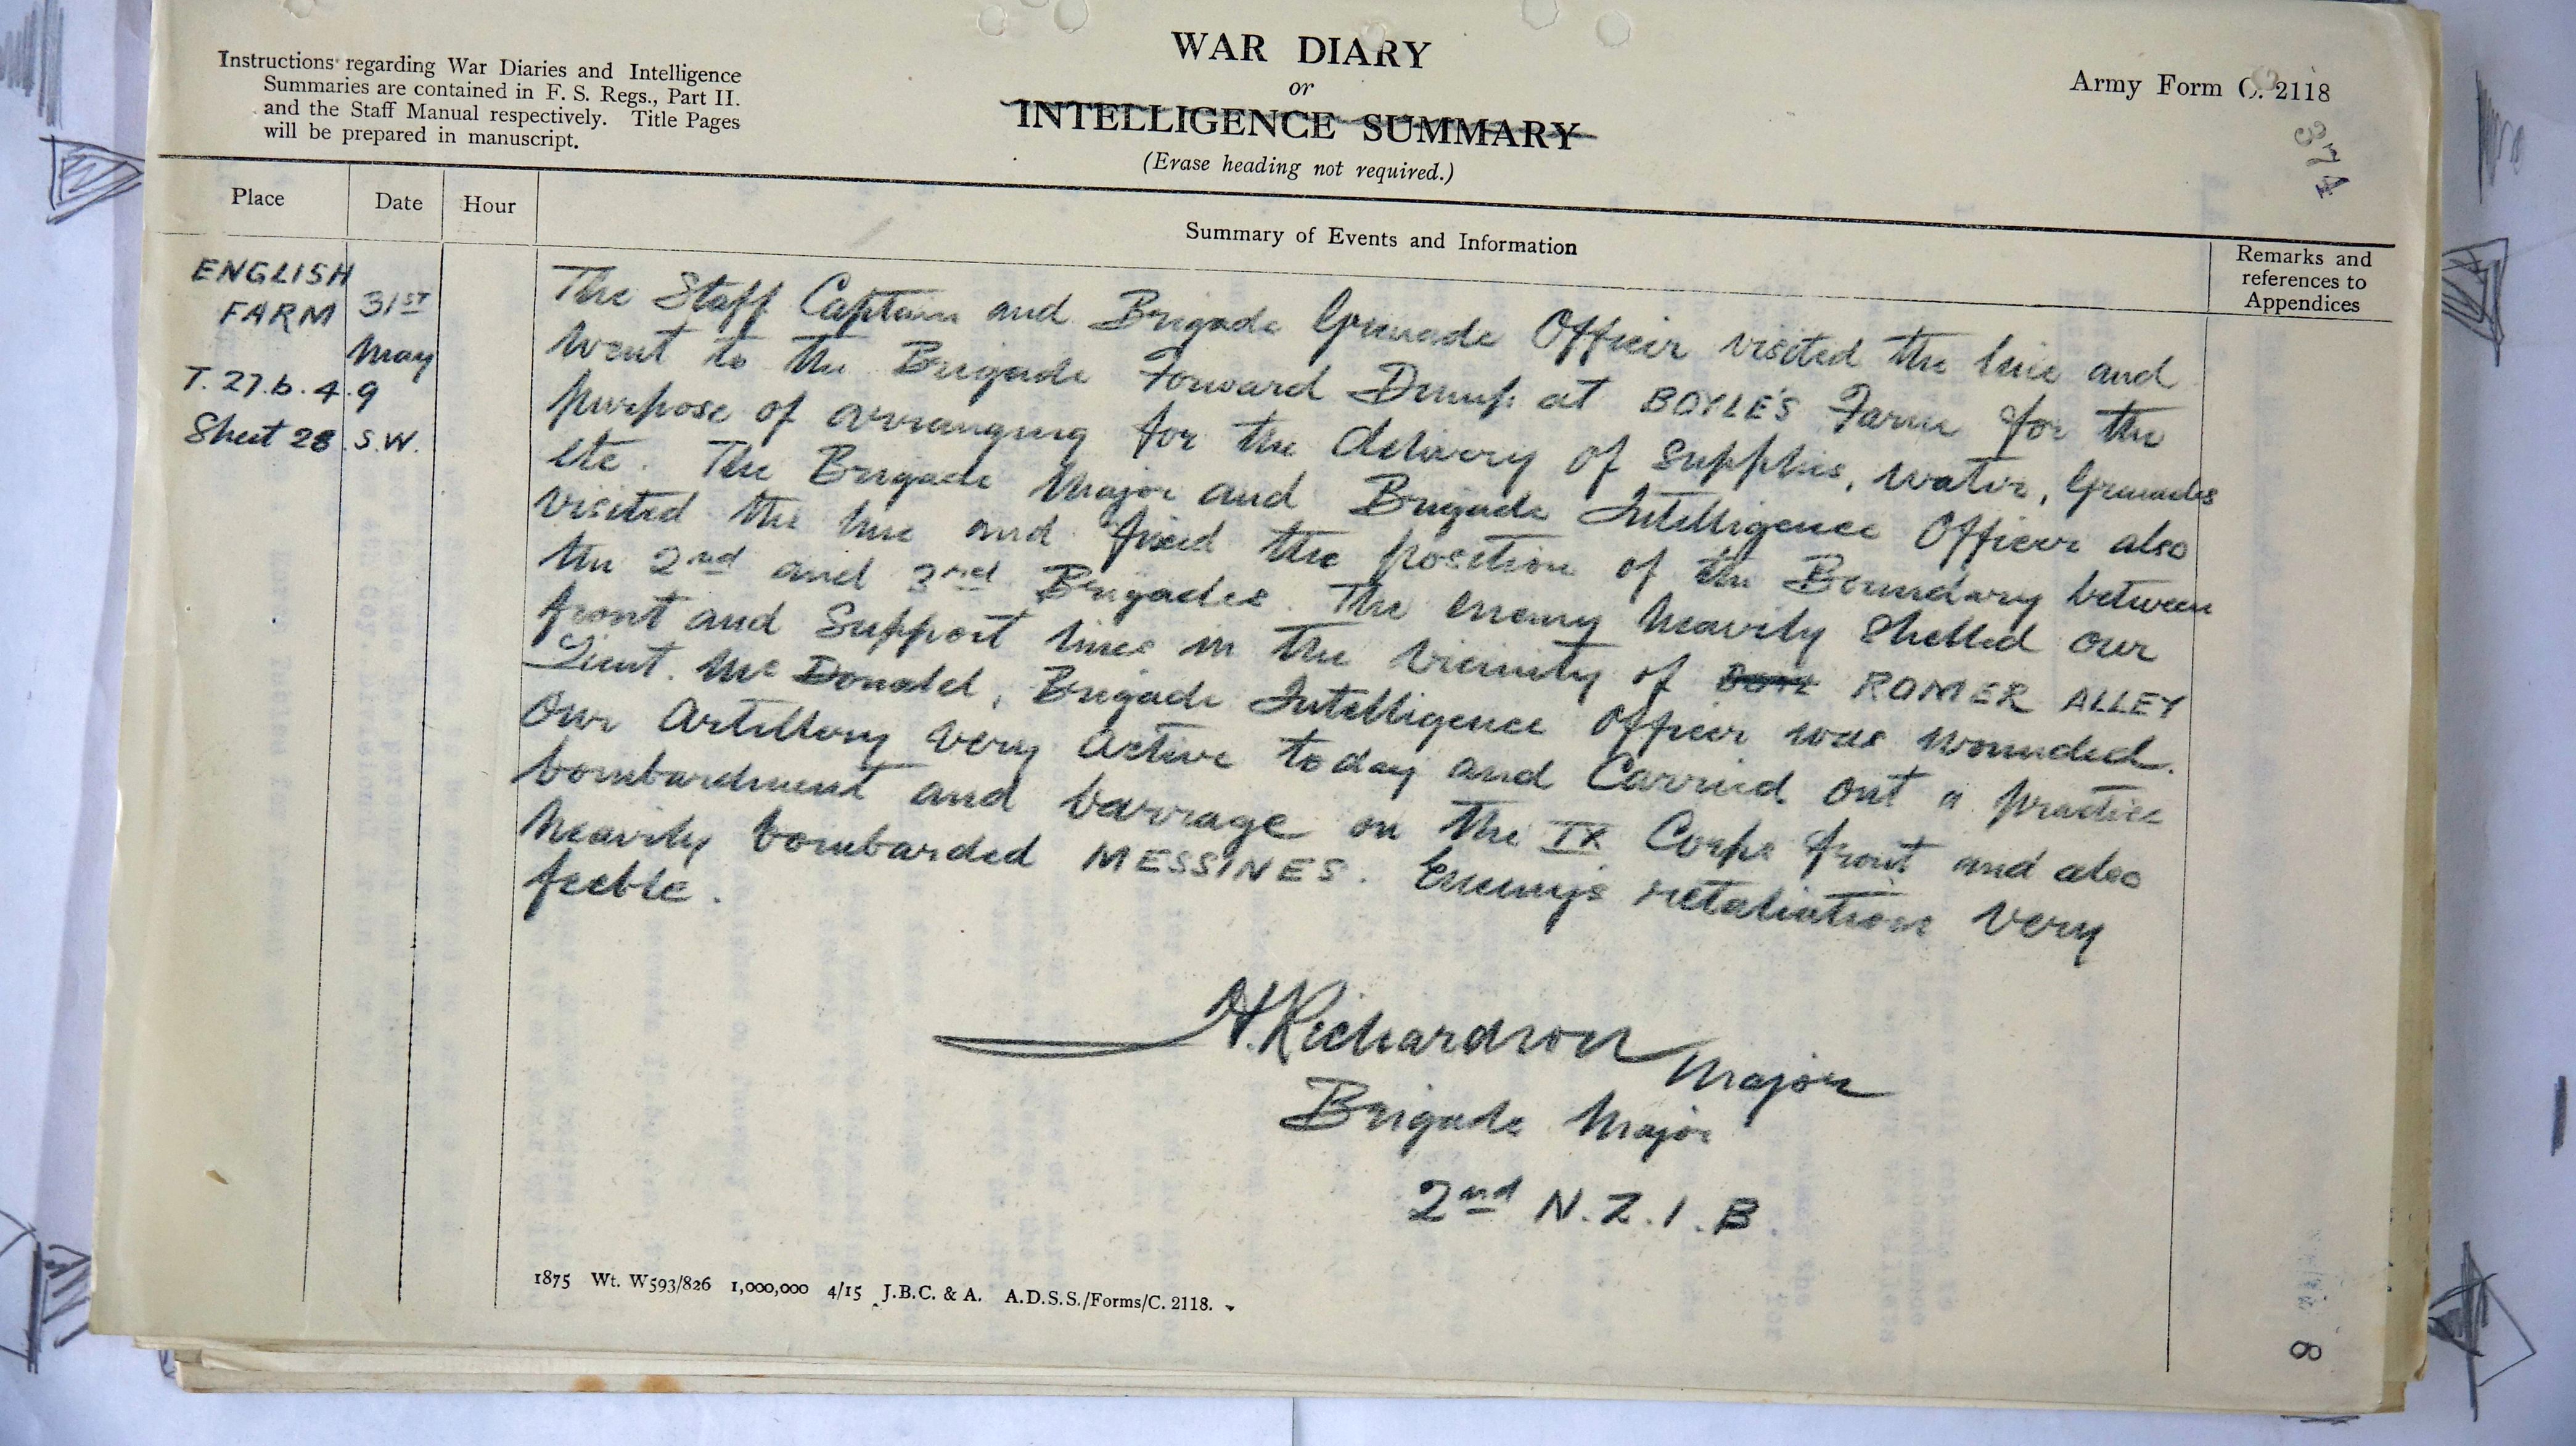 Instructions regarding War Diaries and Intelligence
Summaries are contained in F. S. Regs., Part II.
and the Staff Manual respectively. Title Pages
will be prepared in manuscript.
WAR DIARY
or
INTELLIGENCE SUMMARY
(Erase heading not required.)
Army Form C. 2118
374
Place
Date
Hour
Summary of Events and Information
Remarks and
references to
Appendices
ENGLISH
FARM
T. 27.b.4.9
Sheet 28 S.W.
31ST
May
The Staff Captain and Brigade Grenade Officer visited the line and
went to the Brigade Forward Dump at BOYLE'S Farm for the
purpose of arranging for the delivery of supplies, water, Grenades
etc. The Brigade Major and Brigade Intelligence Officer also
visited the line and fixed the position of the Boundary between
the 2nd and 3rd Brigades. The enemy heavily shelled our
front and Support lines in the vicinity of ROMER ALLEY
Lieut. McDonald, Brigade Intelligence Officer was wounded.
Our Artillery very active today and carried out a practice
bombardment and barrage on the IX Corps front and also
heavily bombarded MESSINES. Enemy's retaliation very
feeble.
H. Richardson Major
Brigade Major
2nd N.Z.I.B.
1875 Wt. W593/826 1,000,000 4/15 J.B.C. & A. A.D.S.S./Forms/C. 2118.
8